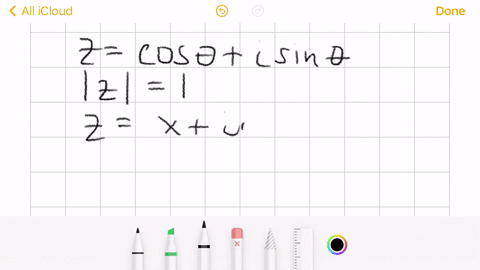 All iCloud
Done
z = cosθ + i sin θ
|z| = 1
z = x + i